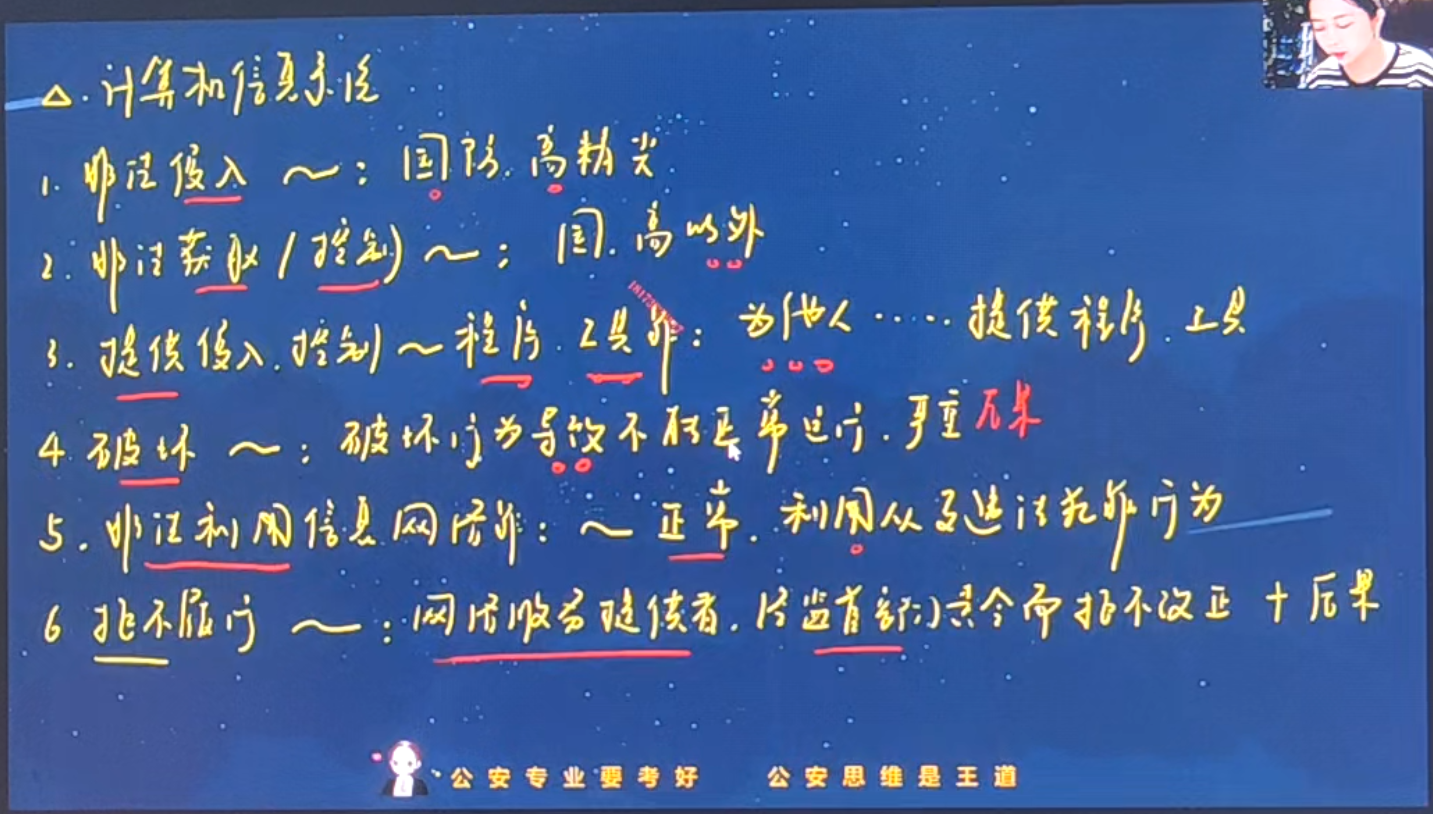 △.计算机信息系统
1. 非法侵入 ～：国防.高精尖
2. 非法获取/控制 ～：国.高以外
3. 提供侵入.控制～程序.工具罪：为他人……提供程序.工具
4. 破坏 ～：破坏行为导致不能正常运行.严重后果
5. 非法利用信息网络罪：～正常.利用从事违法犯罪行为
6 拒不履行 ～：网络服务提供者.经监管部门责令而拒不改正 + 后果
公安专业要考好 公安思维是王道